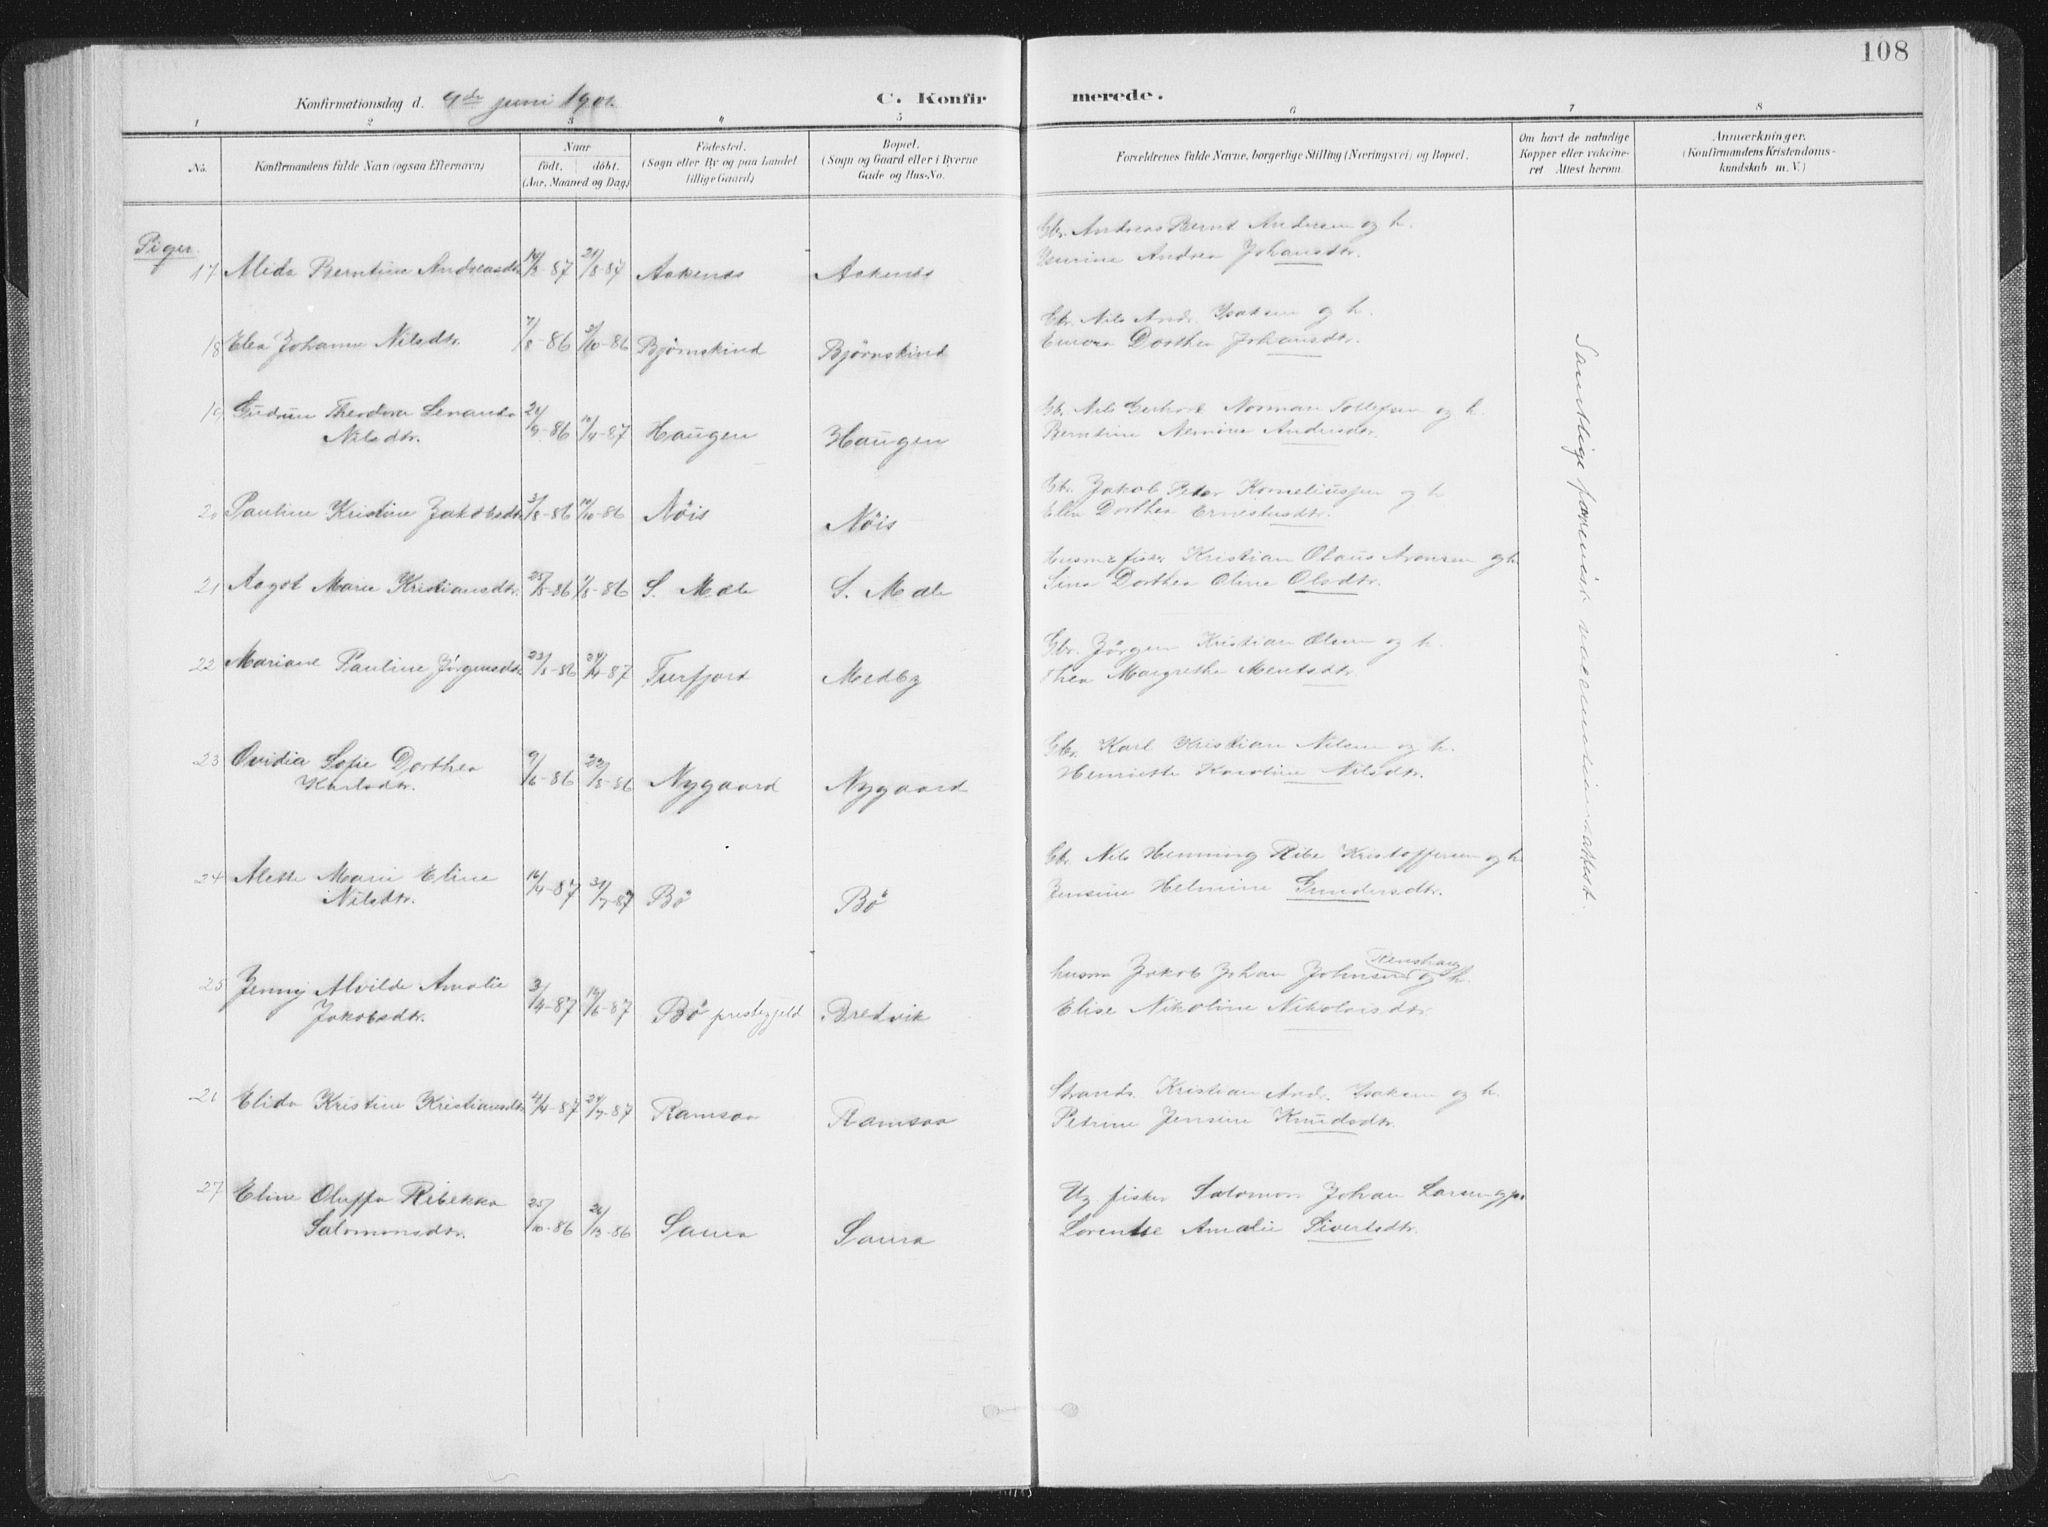 108
Konfirmationsdag d. 9de juni 1901
C. Konfirmerede.
1 2 3 4 5 6 7 8
No. Konfirmandens fulde Navn (ogsaa Efternavn) Naar født. døbt. (Aar, Maaned og Dag) Fødested. (Sogn eller By og paa Landet tillige Gaard) Bopæl. (Sogn og Gaard eller i Byerne Gade og Hus-No. Forældrenes fulde Navne, borgerlige Stilling (Næringsvei) og Bopæl. Om havt de naturlige Kopper eller vakcineret Attest herom. Anmærkninger. (Konfirmandens Kristendomskundskab m. V.)
Piger.
17 Alida Berntine Andreasdtr. 21/8-87 Aakenes Aakenes Gbr. Andreas Bernt Andersen og h.
Andrea Johansdtr.
18 Elea Johanne Nilsdtr. 7/8-86 31/10-86 Bjørnskind Bjørnskind Gbr. Nils Andr. Isaksen og h.
Dorthea Johansdtr.
19 Gudrun Theodora Lenanda
Nilsdtr. 10/4-87 Haugen Haugen Gbr. Nils Norman Tollefsen og h.
Berntine Andersdtr.
20 Pauline Kristine Jakobsdtr. 3/8-86 10/10-86 Nöis Nöis Gbr. Jakob Peter Korneliussen og h
Elea Dorthea Ernestusdtr.
21 Aagot Marie Kristiansdtr. S. Mæle S. Mæle Husm & fisker Kristian Olaus Aronsen og h.
Lina Dorthea Oline Olsdtr.
22 Mariane Pauline Jørgensdtr. Turfjord Medby Gbr. Jørgen Kristian Olsen og h.
Thea Margrethe Mentsdtr.
23 Ovidia Sofie Dorthea
Karlsdtr. 9/6-86 22/8-86 Nygaard Nygaard Gbr. Karl Kristian Nilsen og h.
Henriette Karoline Nilsdtr.
24 Alette Marie Eline
Nilsdtr. 16/4-87 31/7-87 Bö Bö Gbr Nils Henning Ribe Kristoffersen og h
Jensine Helmine Gundersdtr.
25 Jenny Alvilde Amalie
Jakobsdtr. 3/4-87 12/6-87 Bö prestegjeld Bredvik husm Jakob Johan Johnsen og h.
Elise Nikoline Nikolaisdtr
26 Elida Kristine Kristiansdtr 4/4-87 24/7-87 Ramsaa Ramsaa Strands. Kristian Andr. Isaksen og h.
Petrine Jensine Knudsdtr.
27 Eline Oluffa Ribekka
Salomonsdtr. 25/10-86 26/12-86 Saura Saura Ug. fisker Salomon Johan Larsen og p.
Lorentse Amalie Sivertsdtr.
Samtlige forevist vaccinationsattest.